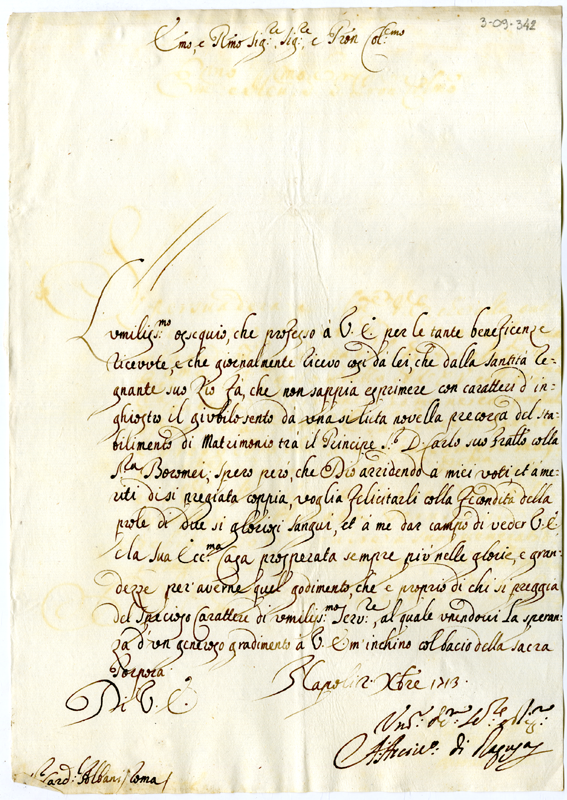 3-09-342
Emo, e Rmo Sig.re Sig.re e Pron Col.mo
L'vmiliss.mo ossequio, che professo à V. E. per le tante beneficenze
riceuute, e che giornalmente riceuo così dà lei, che dalla Santità re-
gnante suo Zio fà, che non sappia esprimere con caratteri d'in-
ghiostro il giubilo sento dà vna sì lieta nouella precorsa del sta-
bilimento di Matrimonio trà il Principe S.r D. Carlo suo frãllo colla
S.ra Boromei, spero però, che Dio arridendo à miei voti, et à me-
riti di sì pregiata coppia, voglia felicitarli colla fecondità della
prole di due sì gloriosi sangui, et à me dar campo di veder V. E.
e la sua Ecc.ma Casa prosperata sempre più nelle glorie, e gran-
dezze per auerne quel godimento, che è proprio di chi si preggia
del specioso carattere di vmiliss.mo Seru.re, al quale vnendoui la speran-
za d'vn generoso gradimento à V. E. m'inchino col bacio della sacra
Porpora.
Napoli 2 Xbre 1713.
Di V. E.
di Ragusa
Card. Albani Roma